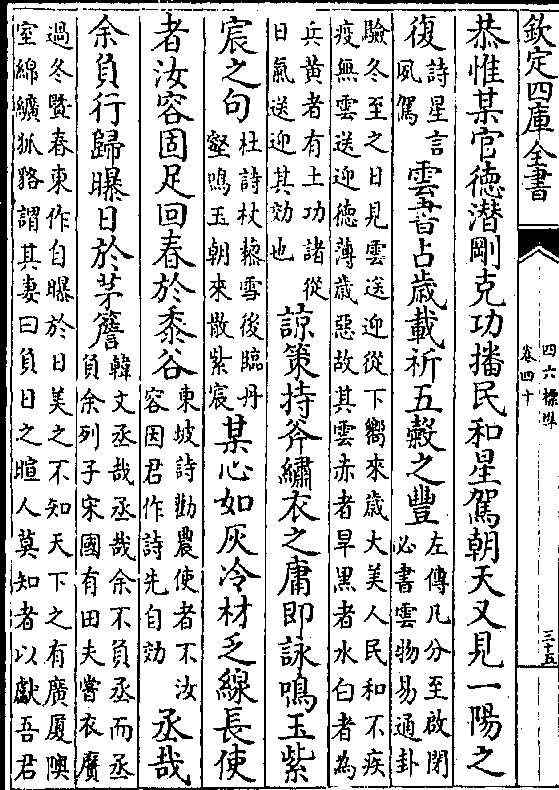 欽定四庫全書
四六標準
卷四十
三十五
恭惟某官德潛剛克功播民和星駕朝天又見一陽之
復
詩星言
夙駕
雲書占歲載祈五穀之豐
左傳凡分至啟閉
必書雲物易通卦
驗冬至之日見雲送迎從下嚮來歲大美人民和不疾
疫無雲送迎德薄歲惡故其雲赤者旱黑者水白者為
兵黄者有土功諸從
日氣送迎其効也
諒策持斧繡衣之庸即詠鳴玉紫
宸之句
杜詩杖藜雪後臨丹
壑鳴玉朝來散紫宸
某心如灰冷材乏線長使
者汝容固足回春於黍谷
東坡詩勸農使者不汝
容因君作詩先自効
丞哉
余負行歸曝日於茅簷
韓文丞哉丞哉余不負丞而丞
負余列子宋國有田夫嘗衣黂
過冬暨春東作自曝於日美之不知天下之有廣厦隩
室綿纊狐狢謂其妻曰負日之暄人莫知者以獻吾君